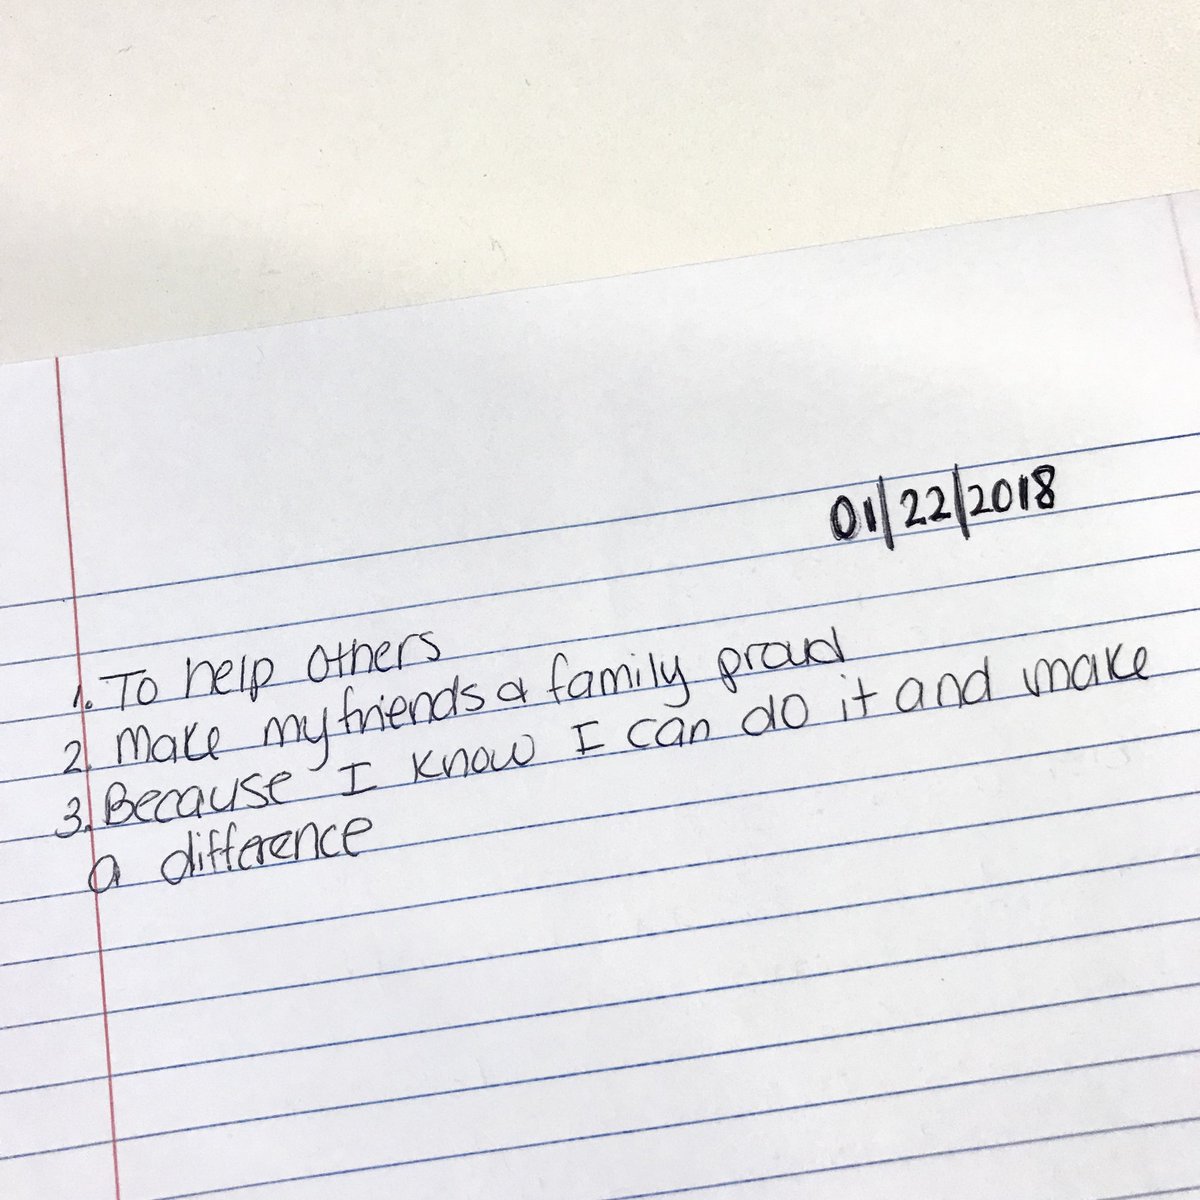 01/22/2018
1. To help others
2. Make my friends & family proud
3. Because I know I can do it and make
a difference